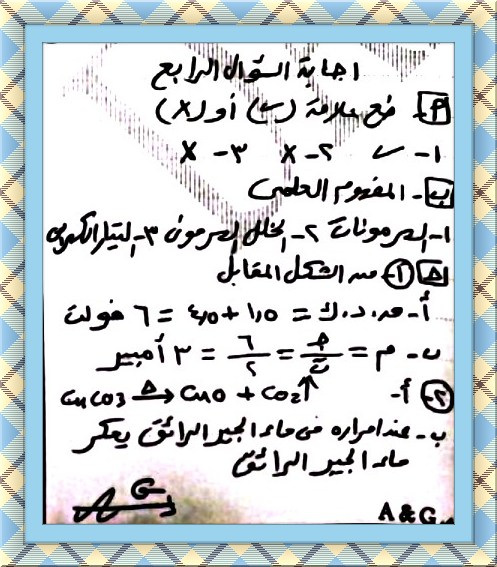 اجابة السؤال الرابع
[أ]- ضع علامة (✓) أو (X)
١- ✓ ٢- X ٣- X
[ب]- المفهوم العلمى
١- الهرمونات ٢- الخلل الهرمونى ٣- التيار الكهربى
[ج] (١)- من الشكل المقابل
أ- ق.د.ك = ١,٥ + ٤,٥ = ٦ فولت
ب- م = جـ/ت = ٦/٢ = ٣ أمبير
(٢)- أ- CuCO3 —Δ→ CuO + CO2↑
ب- عند امراره فى ماء الجير الرائق يعكر
ماء الجير الرائق
A & G